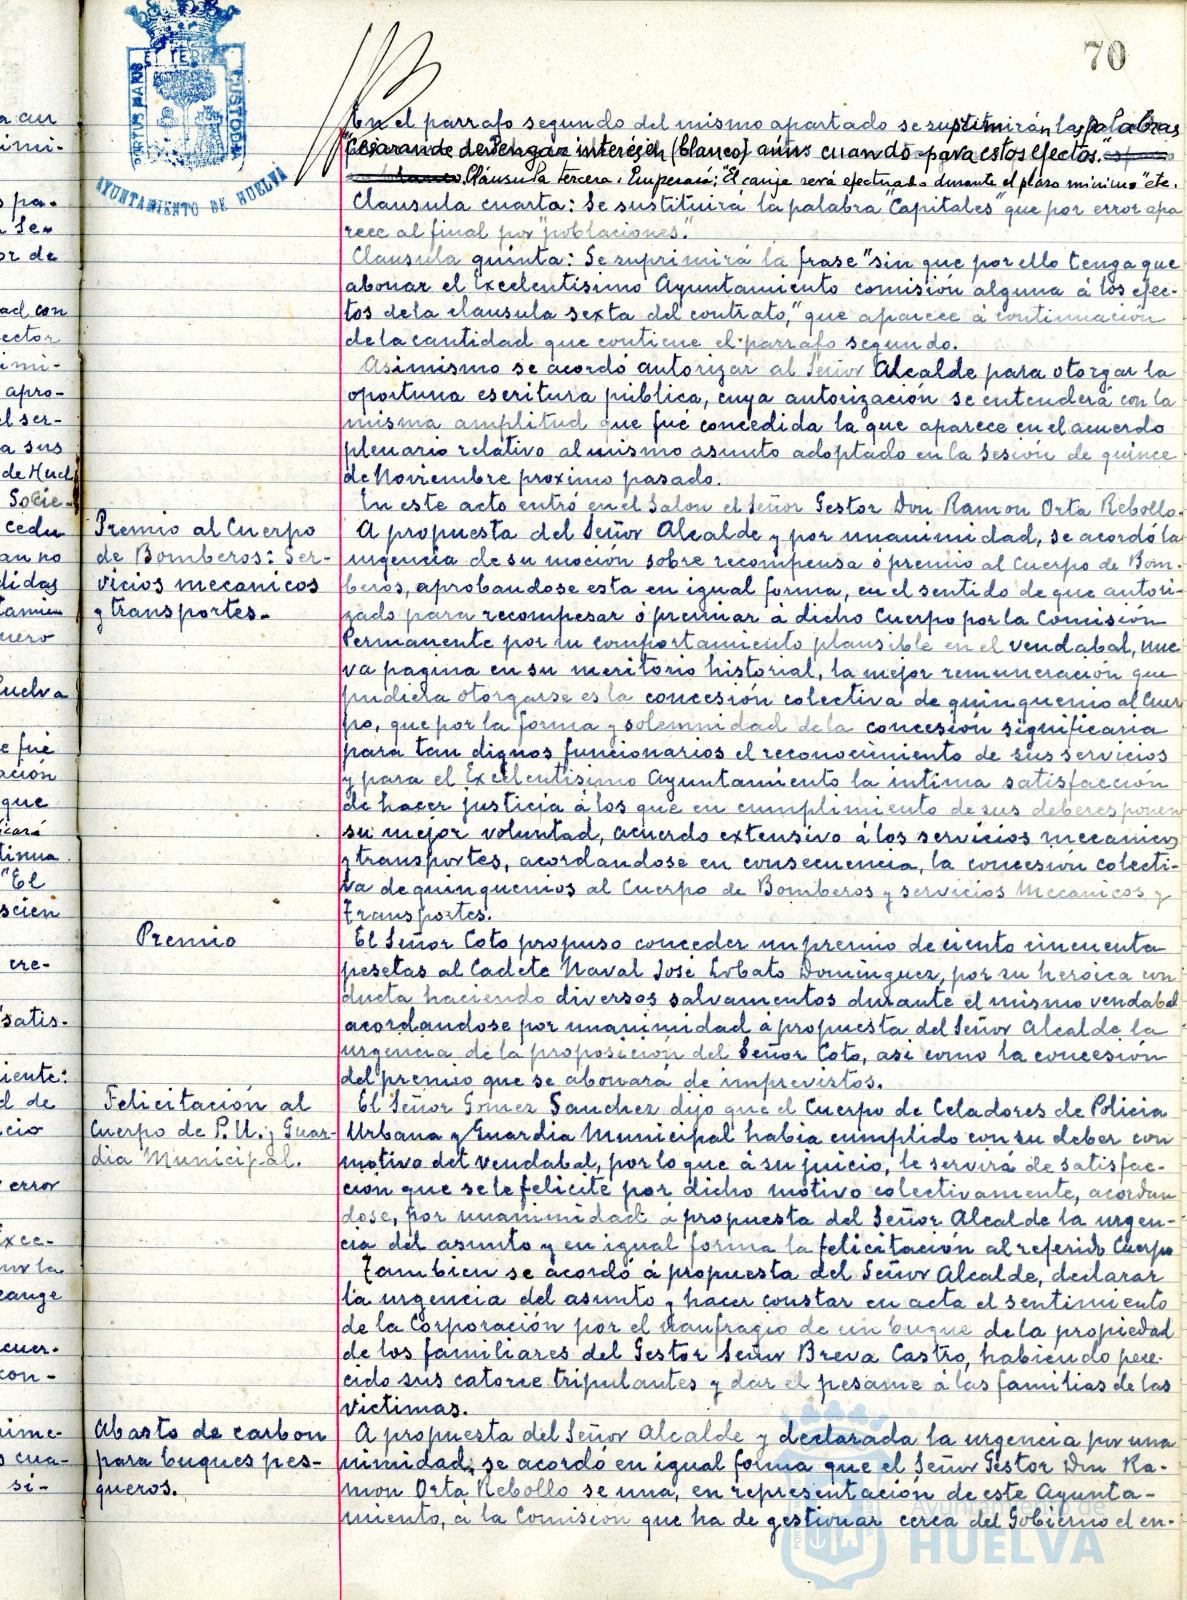 70
PORTUS MARIS
ET TERRE
CUSTODIA
AYUNTAMIENTO DE HUELVA
En el parrafo segundo del mismo apartado se suprimirán las palabras
"Cesarande devengar interés en (blanco) aun cuando para estos efectos."
Cláusula tercera. Empezará; "El canje será efectuado durante el plazo mínimo" etc.
Clausula cuarta: Se sustituirá la palabra Capitales" que por error apa
rece al final por "poblaciones."
Clausula quinta: Se suprimirá la frase "sin que por ello tenga que
abonar el Excelentisimo Ayuntamiento comisión alguna á los efec-
tos de la clausula sexta del contrato," que aparece á continuación
de la cantidad que contiene el parrafo segundo.
Asimismo se acordó autorizar al Señor Alcalde para otorgar la
oportuna escritura pública, cuya autorización se entenderá con la
misma amplitud que fué concedida la que aparece en el acuerdo
plenario relativo al mismo asunto adoptado en la Sesión de quince
de Noviembre proximo pasado.
En este acto entró en el Salon el Señor Gestor Don Ramon Orta Rebollo.
Premio al Cuerpo
de Bomberos: Ser-
vicios mecanicos
y transportes.
A propuesta del Señor Alcalde y por unanimidad, se acordó la
urgencia de su moción sobre recompensa ó premio al Cuerpo de Bom-
beros, aprobandose esta en igual forma, en el sentido de que autori-
zado para recompesar ó premiar á dicho Cuerpo por la Comisión
Permanente por su comportamiento plausible en el vendabal, nue
va pagina en su meritorio historial, la mejor remuneración que
pudiera otorgarse es la concesión colectiva de quinquenio al Cuer
po, que por la forma y solemnidad de la concesión significaria
para tan dignos funcionarios el reconocimiento de sus servicios
y para el Excelentisimo Ayuntamiento la intima satisfacción
de hacer justicia á los que en cumplimiento de sus deberes ponen
su mejor voluntad, acuerdo extensivo á los servicios mecanicos
y transportes, acordandose en consecuencia, la concesión colecti-
va de quinquenios al Cuerpo de Bomberos y servicios Mecanicos y
Transportes.
Premio
El Señor Coto propuso conceder un premio de ciento cincuenta
pesetas al Cadete Naval José Lobato Dominguez, por su heróica con
ducta haciendo diversos salvamentos durante el mismo vendabal
acordandose por unanimidad á propuesta del Señor Alcalde la
urgencia de la proposición del Señor Coto, asi como la concesión
del premio que se abonará de imprevistos.
Felicitación al
Cuerpo de P.U. y Guar-
dia Municipal.
El Señor Gomez Sanchez dijo que el Cuerpo de Celadores de Policia
Urbana y Guardia Municipal habia cumplido con su deber con
motivo del vendabal, por lo que á su juicio, le servirá de satisfac-
cion que se le felicite por dicho motivo colectivamente, acordan
dose, por unanimidad á propuesta del Señor Alcalde la urgen-
cia del asunto y en igual forma la felicitación al referido Cuerpo
Tambien se acordó á propuesta del Señor Alcalde, declarar
la urgencia del asunto y hacer constar en acta el sentimiento
de la Corporación por el naufragio de un buque de la propiedad
de los familiares del Gestor Señor Breva Castro, habiendo pere-
cido sus catorce tripulantes y dar el pesame á las familias de las
victimas.
Abasto de carbon
para buques pes-
queros.
A propuesta del Señor Alcalde y declarada la urgencia por una
nimidad, se acordó en igual forma que el Señor Gestor Don Ra-
mon Orta Rebollo se una, en representación de este Ayunta-
miento, á la Comision que ha de gestionar cerca del Gobierno el en-
Ayuntamiento de
HUELVA